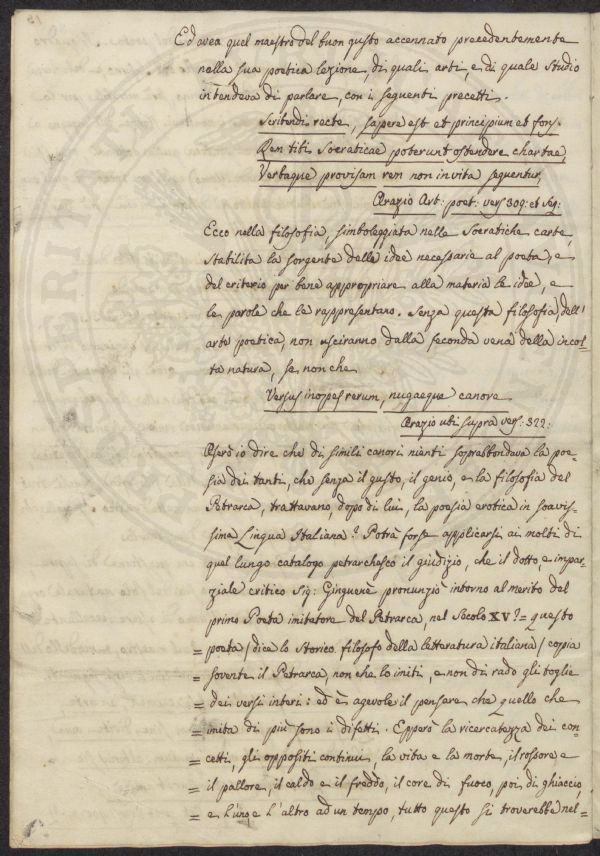 Ed avea quel maestro del buon gusto accennato precedentemente
nella sua poetica lezione di quali arti, e di quale studio
intendeva di parlare, con i seguenti precetti.
Scribendi recte, sapere est et principium et fons.
Rem tibi Socraticae poterunt ostendere chartae,
Verbaque provisam rem non invita sequentur,
Orazio Art: poet: vers 309: et seq:
Ecco nella filosofia, simboleggiata nelle Socratiche carte,
stabilita la sorgente delle idee necessarie al poeta, e
del criterio per bene appropriare alla materia le idee, e
le parole che le rappresentano. Senza questa filosofia dell'
arte poetica, non usciranno dalla feconda vena della incol=
ta natura, se non che
Versus inopes rerum, nugaeque canore
Orazio ubi supra vers: 322:
Oserò io dire che di simili canori nienti soprabbondava la poe-
sia dei tanti, che senza il gusto, il genio, e la filosofia del
Petrarca, trattavano, dopo di lui, la poesia erotica in soavis-
sima Lingua Italiana? Potrà forse applicarsi ai molti di
quel lungo catalogo petrarchesco il giudizio, che il dotto, e impar-
ziale critico Sig: Ginguené pronunziò intorno al merito del
primo Poeta imitatore del Petrarca, nel Secolo XV? = questo
= poeta / dice lo Storico filosofo della letteratura italiana / copia
= sovente il Petrarca, non che lo imiti, e non di rado gli toglie
= dei versi interi: ed è agevole il pensare che quello che
= imita di più sono i difetti. Epperò la ricercatezza dei con-
= cetti, gli oppositi continui, la vita e la morte, il rossore e
= il pallore, il caldo e il freddo, il core di fuoco, poi di ghiaccio,
= e l'uno e l'altro ad un tempo, tutto questo si troverebbe nel=